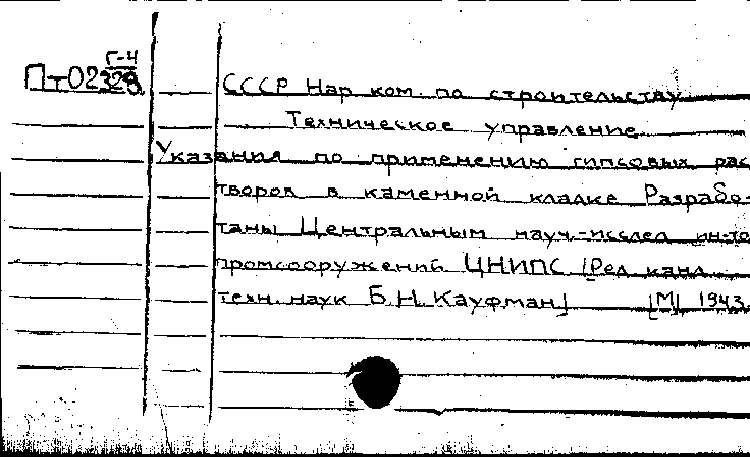 Г-4
Пт02328
СССР Нар ком. по строительству
Техническое управление
Указания по применению гипсовых рас
творов в каменной кладке Разрабо-
таны Центральным науч.-исслед ин-то
промсооружений ЦНИПС [Ред. канд.
техн. наук Б.Н. Кауфман] [М] 1943